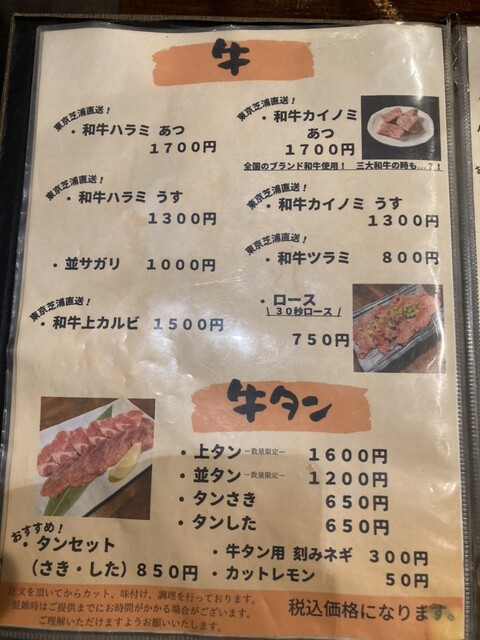 牛
東京芝浦直送!
・和牛ハラミ あつ
1700円
東京芝浦直送!
・和牛カイノミ
あつ
1700円
全国のブランド和牛使用! 三大和牛の時も…?!
東京芝浦直送!
・和牛ハラミ うす
1300円
東京芝浦直送!
・和牛カイノミ うす
1300円
・並サガリ 1000円
東京芝浦直送!
・和牛ツラミ 800円
東京芝浦直送!
・和牛上カルビ 1500円
・ロース
\ 30秒ロース /
750円
牛タン
・上タン -数量限定- 1600円
・並タン -数量限定- 1200円
・タンさき 650円
・タンした 650円
おすすめ!
・タンセット
(さき・した) 850円
・牛タン用 刻みネギ 300円
・カットレモン 50円
注文を頂いてからカット、味付け、調理を行っております。
混雑時はご提供までにお時間がかかる場合がございます。
ご理解いただけますようお願いいたします。
税込価格になります。